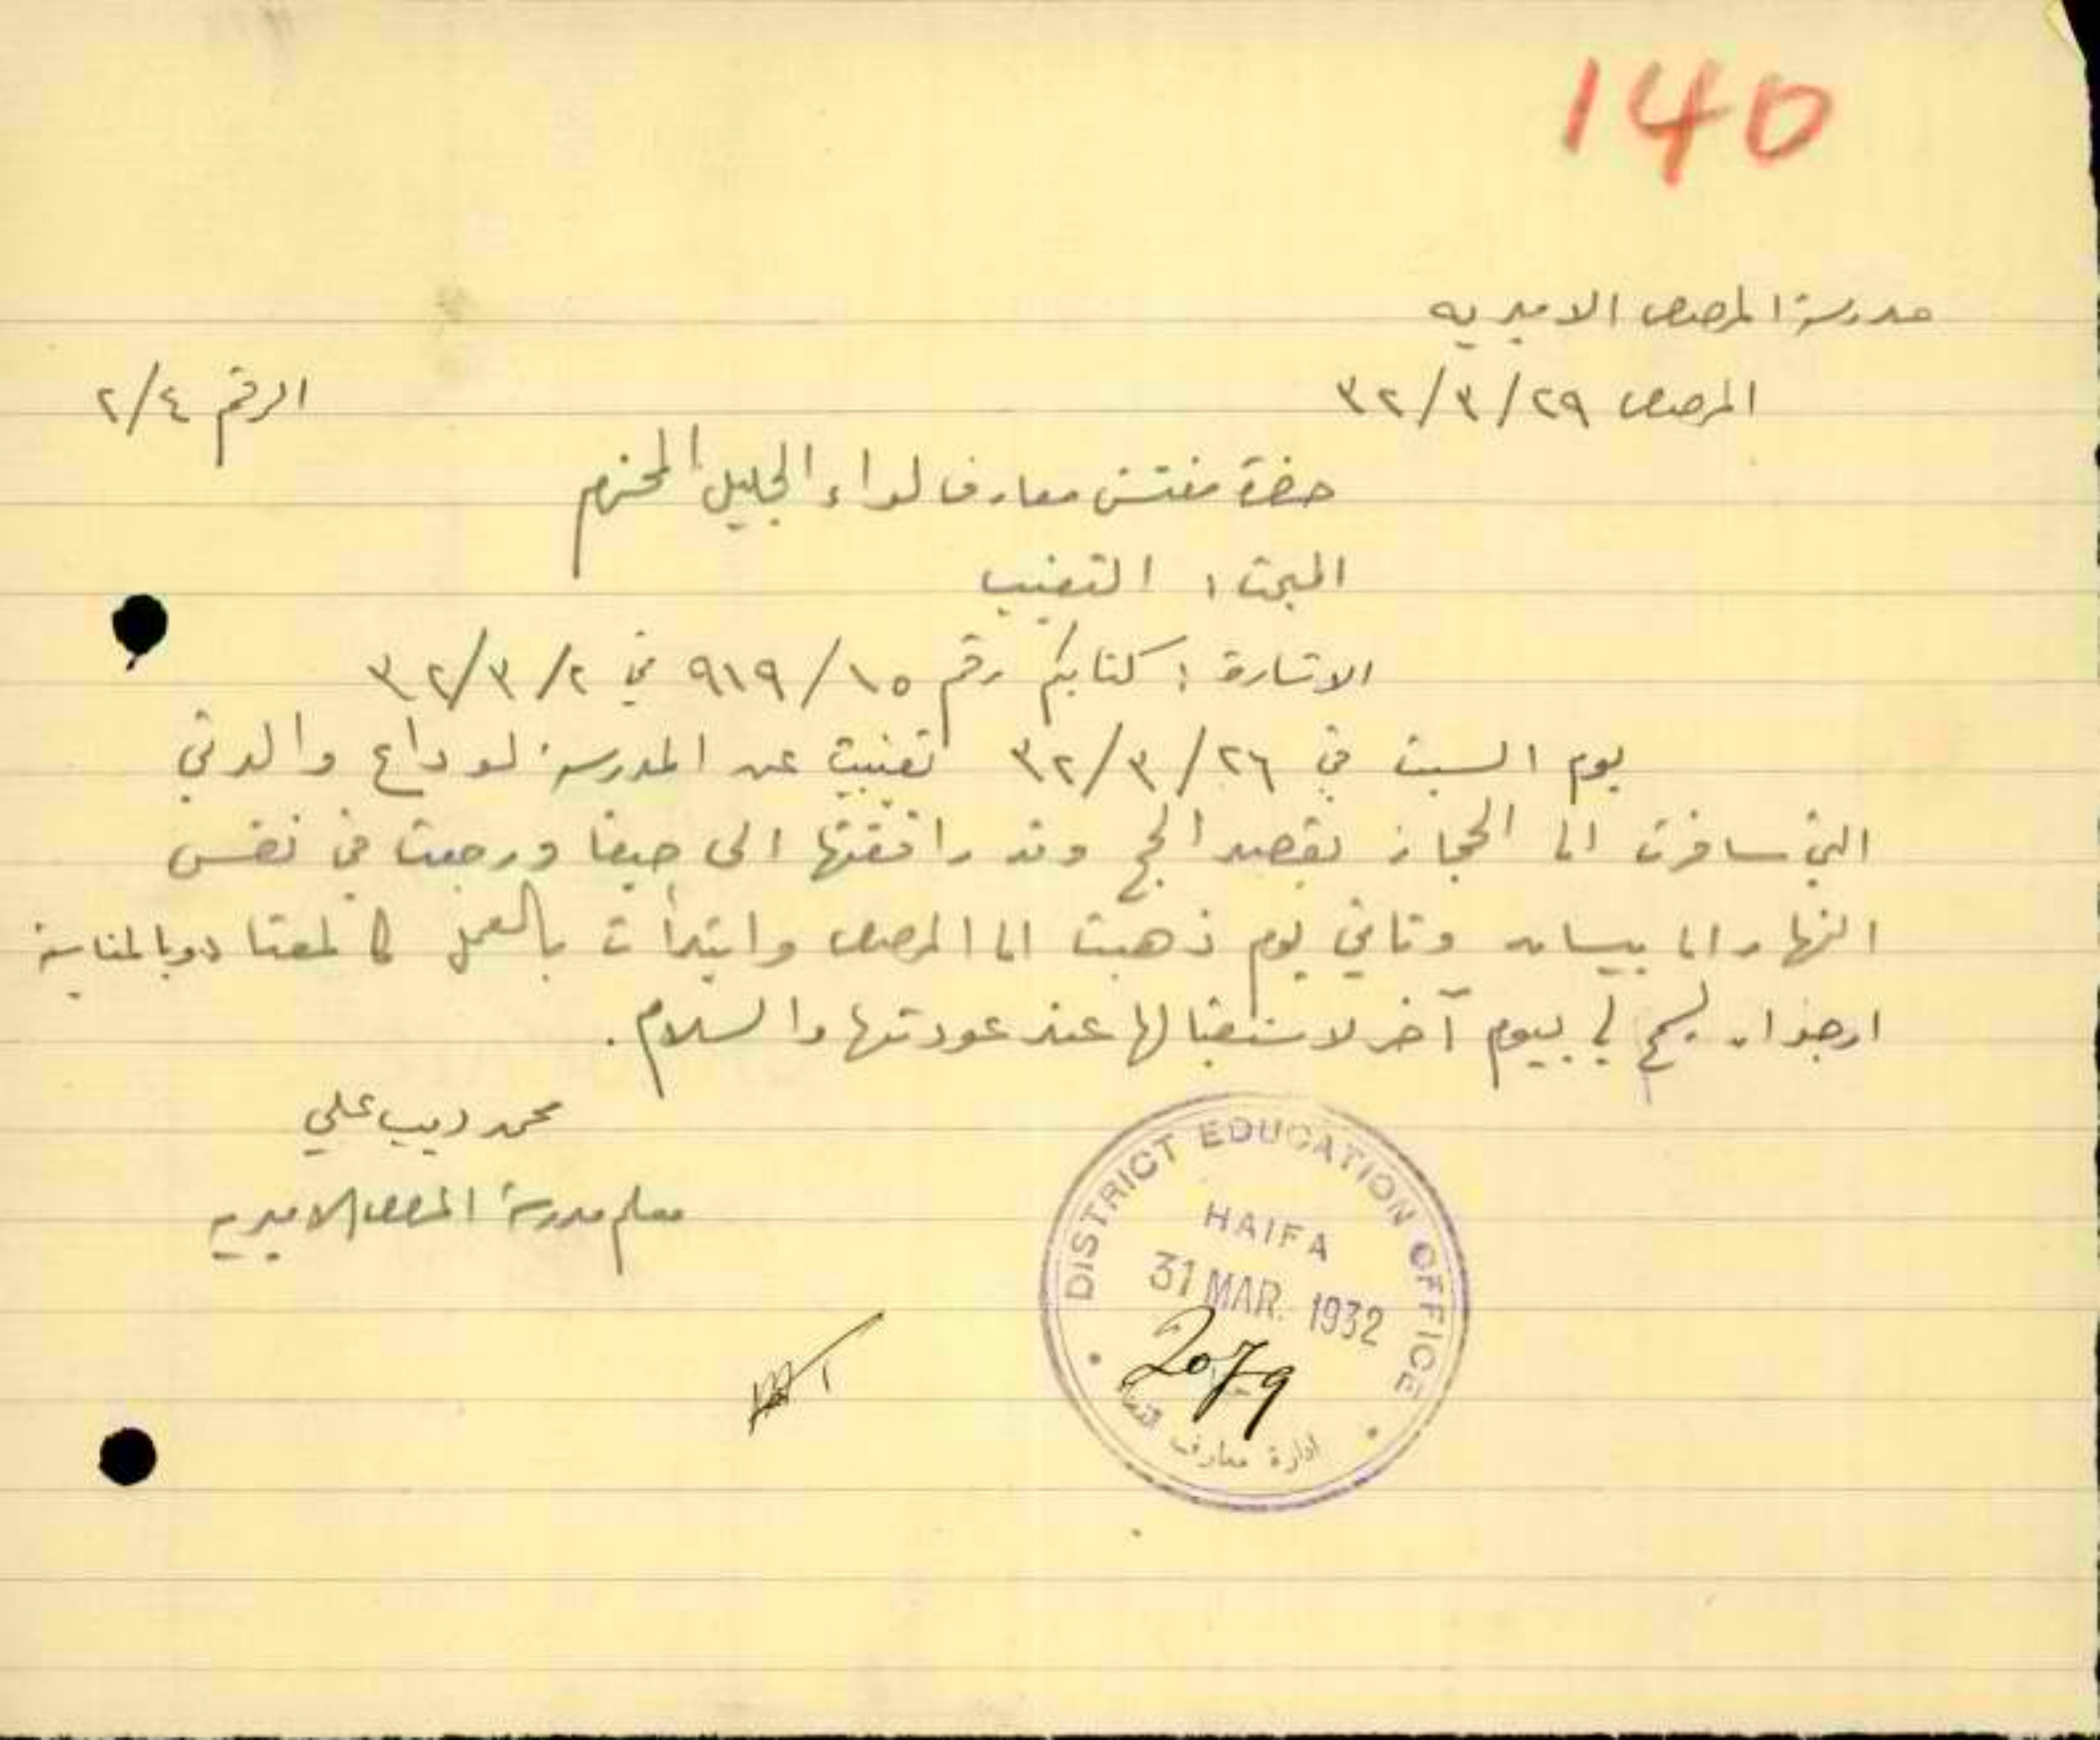 140
مدرسة المرصص الاميريه
المرصص ٢٩/٣/٣٢
الرقم ٢/٤
حضرة مفتش معارف لواء الجليل المحترم
البحث : التغيب
الاشارة : كتابكم رقم ٩١٩/١٥ في ٣٢/٣/٢
يوم السبت في ٣٢/٣/٢٦ تغيبت عن المدرسة لوداع والدتي
التي سافرت الى الحجاز بقصد الحج وقد رافقتها الى حيفا ورجعت في نفس
النهار الى بيسان وثاني يوم ذهبت الى المرصص وابتدأت بالعمل كالمعتاد وبالمناسبة
ارجو ان يسمح لي بيوم آخر لاستقبالها عند عودتها والسلام .
محمد ديب علي
معلم مدرسة المرصص الاميريه
DISTRICT EDUCATION OFFICE
HAIFA
31 MAR. 1932
2079
ادارة معارف